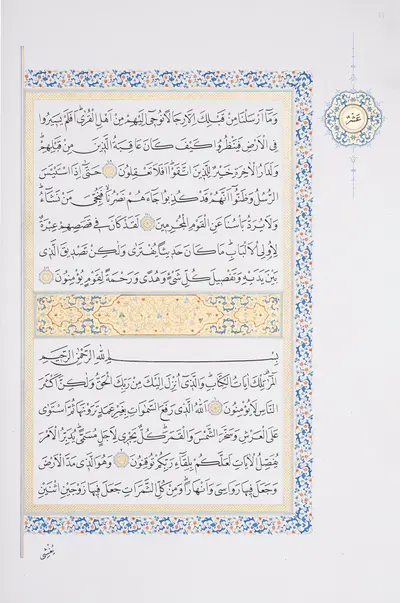 وَمَٓا اَرْسَلْنَا مِنْ قَبْلِكَ اِلَّا رِجَالًا نُوحٖٓى اِلَيْهِمْ مِنْ اَهْلِ الْقُرٰىۜ اَفَلَمْ يَسٖيرُوا
فِى الْاَرْضِ فَيَنْظُرُوا كَيْفَ كَانَ عَاقِبَةُ الَّذٖينَ مِنْ قَبْلِهِمْۜ
وَلَدَارُ الْاٰخِرَةِ خَيْرٌ لِلَّذٖينَ اتَّقَوْاۜ اَفَلَا تَعْقِلُونَ حَتّٰٓى اِذَا اسْتَيْـَٔسَ
الرُّسُلُ وَظَنُّٓوا اَنَّهُمْ قَدْ كُذِبُوا جَٓاءَهُمْ نَصْرُنَا فَنُجِّىَ مَنْ نَشَٓاءُۜ
وَلَا يُرَدُّ بَأْسُنَا عَنِ الْقَوْمِ الْمُجْرِمٖينَ لَقَدْ كَانَ فٖى قَصَصِهِمْ عِبْرَةٌ
لِاُو۬لِى الْاَلْبَابِۜ مَا كَانَ حَدٖيثًا يُفْتَرٰى وَلٰكِنْ تَصْدٖيقَ الَّذٖى
بَيْنَ يَدَيْهِ وَتَفْصٖيلَ كُلِّ شَىْءٍ وَهُدًى وَرَحْمَةً لِقَوْمٍ يُؤْمِنُونَ
بِسْمِ اللّٰهِ الرَّحْمٰنِ الرَّحٖيمِ
الٓمٓرٰ تِلْكَ اٰيَاتُ الْكِتَابِۜ وَالَّذٖٓى اُنْزِلَ اِلَيْكَ مِنْ رَبِّكَ الْحَقُّ وَلٰكِنَّ اَكْثَرَ
النَّاسِ لَا يُؤْمِنُونَ اَللّٰهُ الَّذٖى رَفَعَ السَّمٰوَاتِ بِغَيْرِ عَمَدٍ تَرَوْنَهَا ثُمَّ اسْتَوٰى
عَلَى الْعَرْشِ وَسَخَّرَ الشَّمْسَ وَالْقَمَرَۜ كُلٌّ يَجْرٖى لِاَجَلٍ مُسَمًّىۜ يُدَبِّرُ الْاَمْرَ
يُفَصِّلُ الْاٰيَاتِ لَعَلَّكُمْ بِلِقَٓاءِ رَبِّكُمْ تُوقِنُونَ وَهُوَ الَّذٖى مَدَّ الْاَرْضَ
وَجَعَلَ فٖيهَا رَوَاسِىَ وَاَنْهَارًاۜ وَمِنْ كُلِّ الثَّمَرَاتِ جَعَلَ فٖيهَا زَوْجَيْنِ اثْنَيْنِ
يُغْشِى
عَشْر